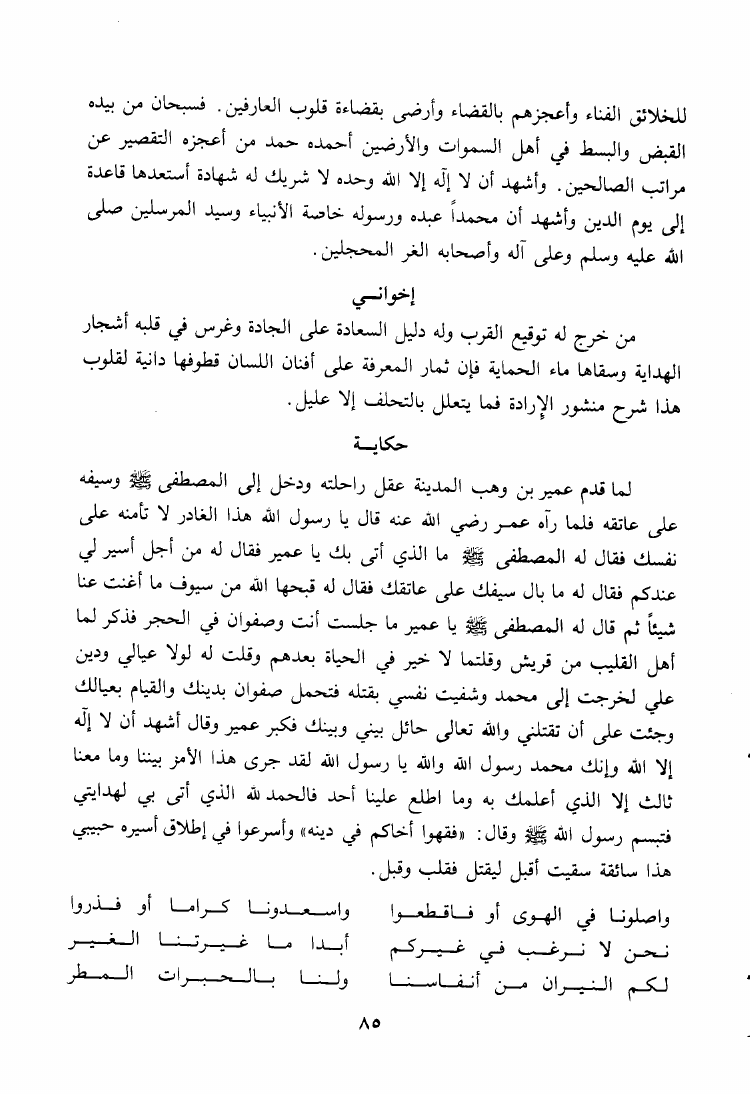 للخلائق الفناء وأعجزهم بالقضاء وأرضى بقضاءة قلوب العارفين. فسبحان من بيده
القبض والبسط في أهل السموات والأرضين أحمده حمد من أعجزه التقصير عن
مراتب الصالحين. وأشهد أن لا إلٰه إلا الله وحده لا شريك له شهادة أستعدها قاعدة
إلى يوم الدين وأشهد أن محمداً عبده ورسوله خاصة الأنبياء وسيد المرسلين صلى
الله عليه وسلم وعلى آله وأصحابه الغر المحجلين.
إخوانـي
من خرج له توقيع القرب وله دليل السعادة على الجادة وغرس في قلبه أشجار
الهداية وسقاها ماء الحماية فإن ثمار المعرفة على أفنان اللسان قطوفها دانية لقلوب
هذا شرح منشور الإرادة فما يتعلل بالتحلف إلا عليل.
حكايـة
لما قدم عمير بن وهب المدينة عقل راحلته ودخل إلى المصطفى ﷺ وسيفه
على عاتقه فلما رآه عمر رضي الله عنه قال يا رسول الله هذا الغادر لا تأمنه على
نفسك فقال له المصطفى ﷺ ما الذي أتى بك يا عمير فقال له من أجل أسير لي
عندكم فقال له ما بال سيفك على عاتقك فقال له قبحها الله من سيوف ما أغنت عنا
شيئاً ثم قال له المصطفى ﷺ يا عمير ما جلست أنت وصفوان في الحجر فذكر لما
أهل القليب من قريش وقلتما لا خير في الحياة بعدهم وقلت له لولا عيالي ودين
علي لخرجت إلى محمد وشفيت نفسي بقتله فتحمل صفوان بدينك والقيام بعيالك
وجئت على أن تقتلني والله تعالى حائل بيني وبينك فكبر عمير وقال أشهد أن لا إلٰه
إلا الله وإنك محمد رسول الله والله يا رسول الله لقد جرى هذا الأمر بيننا وما معنا
ثالث إلا الذي أعلمك به وما اطلع علينا أحد فالحمد لله الذي أتى بي لهدايتي
فتبسم رسول الله ﷺ وقال: «فقهوا أخاكم في دينه» وأسرعوا في إطلاق أسيره حبيبي
هذا سائقة سقيت أقبل ليقتل فقلب وقبل.
واصلونا في الهوى أو فاقطعوا واسعدونا كراما أو فذروا
نحن لا نرغب في غيركم أبدا ما غيرتنا الغير
لكم النيران من أنفاسنا ولنا بالحبرات المطر
٨٥